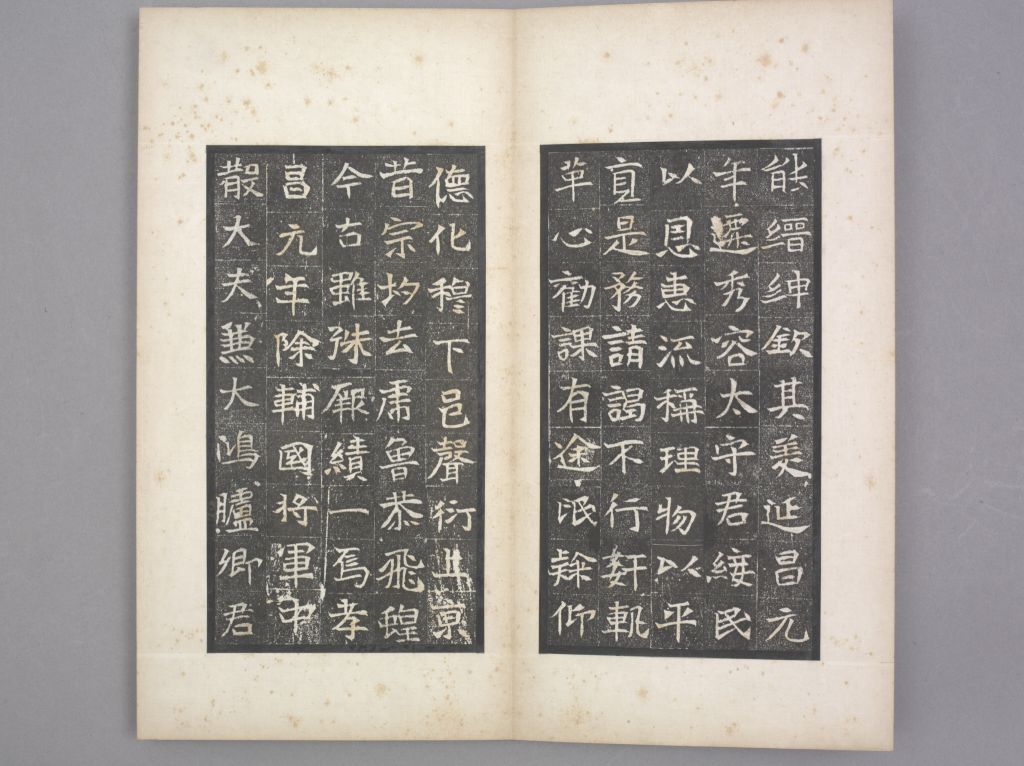 能縉紳欽其美延昌元
年遷秀容太守君綏民
以恩惠流稱理物以平
直是務請謁不行姧軌
革心勸課有途氓隸仰
德化穆下邑聲衍上京
昔宗均去虎魯恭飛蝗
今古雖殊厥績一焉孝
昌元年除輔國将軍中
散大夫兼大鴻臚卿君